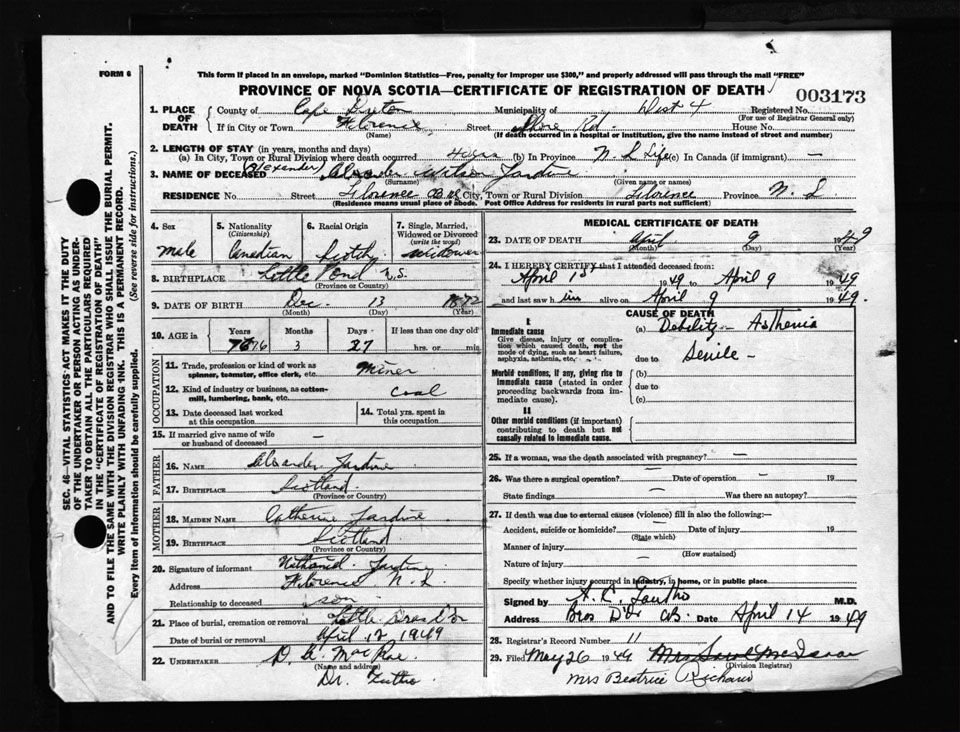 FORM 6
This form if placed in an envelope, marked "Dominion Statistics—Free, penalty for improper use $300," and properly addressed will pass through the mail "FREE"
PROVINCE OF NOVA SCOTIA—CERTIFICATE OF REGISTRATION OF DEATH
003173
1. PLACE OF DEATH
County of Cape Breton Municipality of Dist 4 Registered No.
(For use of Registrar General only)
If in City or Town Florence Street Shore Rd House No.
(Name) (If death occurred in a hospital or institution, give the name instead of street and number)
2. LENGTH OF STAY (in years, months and days)
(a) In City, Town or Rural Division where death occurred (b) In Province N. S Life (c) In Canada (if immigrant) —
3. NAME OF DECEASED (Alexander) Wilson Jardine
(Surname) (Given name or names)
RESIDENCE No. Street Florence City, Town or Rural Division Florence Province N. S
(Residence means usual place of abode. Post Office Address for residents in rural parts not sufficient)
4. Sex
Male
5. Nationality
(Citizenship)
Canadian
6. Racial Origin
Scotch
7. Single, Married, Widowed or Divorced
(write the word)
Widower
8. BIRTHPLACE Little Pond N.S.
(Province or Country)
9. DATE OF BIRTH Dec. 13 1872
(Month) (Day) (Year)
10. AGE in Years Months Days If less than one day old
76 3 27 hrs. or min.
OCCUPATION
11. Trade, profession or kind of work as spinner, teamster, office clerk, etc. Miner
12. Kind of industry or business, as cotton-mill, lumbering, bank, etc. Coal
13. Date deceased last worked at this occupation
14. Total yrs. spent in this occupation
15. If married give name of wife or husband of deceased —
FATHER
16. NAME Alexander Jardine
17. BIRTHPLACE Scotland
(Province or Country)
MOTHER
18. MAIDEN NAME Catherine Jardine
19. BIRTHPLACE Scotland
(Province or Country)
20. Signature of informant Nathaniel Jardine
Address Florence N. S.
Relationship to deceased son
21. Place of burial, cremation or removal Little Bras D'or
Date of burial or removal April 12 1949
22. UNDERTAKER
(Name and address)
MEDICAL CERTIFICATE OF DEATH
23. DATE OF DEATH April 9 1949
(Month) (Day) (Year)
24. I HEREBY CERTIFY that I attended deceased from:
April 1st 1949 to April 9 1949
and last saw him alive on April 9 1949.
CAUSE OF DEATH
I
Immediate cause
Give disease, injury or complication which caused death, not the mode of dying, such as heart failure, asphyxia, asthenia, etc.
(a) Debility – Asthenia
due to Senile –
Morbid conditions, if any, giving rise to immediate cause (stated in order proceeding backwards from immediate cause).
(b)
due to
(c)
II
Other morbid conditions (if important) contributing to death but not causally related to immediate cause.
25. If a woman, was the death associated with pregnancy? —
26. Was there a surgical operation? — Date of operation — 19
State findings — Was there an autopsy?
27. If death was due to external causes (violence) fill in also the following:—
Accident, suicide or homicide? Date of injury 19
(State which)
Manner of injury
(How sustained)
Nature of injury
Specify whether injury occurred in industry, in home, or in public place
Signed by M.D.
Address Bras D'Or CB. Date April 14 1949
28. Registrar's Record Number 11
29. Filed May 26 1949
(Division Registrar)
Mrs Beatrice Richard
SEC. 46—VITAL STATISTICS ACT MAKES IT THE DUTY
OF THE UNDERTAKER OR PERSON ACTING AS UNDER-
TAKER TO OBTAIN ALL THE PARTICULARS REQUIRED
IN THE "CERTIFICATE OF REGISTRATION OF DEATH"
AND TO FILE THE SAME WITH THE DIVISION REGISTRAR WHO SHALL ISSUE THE BURIAL PERMIT.
WRITE PLAINLY WITH UNFADING INK. THIS IS A PERMANENT RECORD.
Every item of information should be carefully supplied. (See reverse side for instructions.)